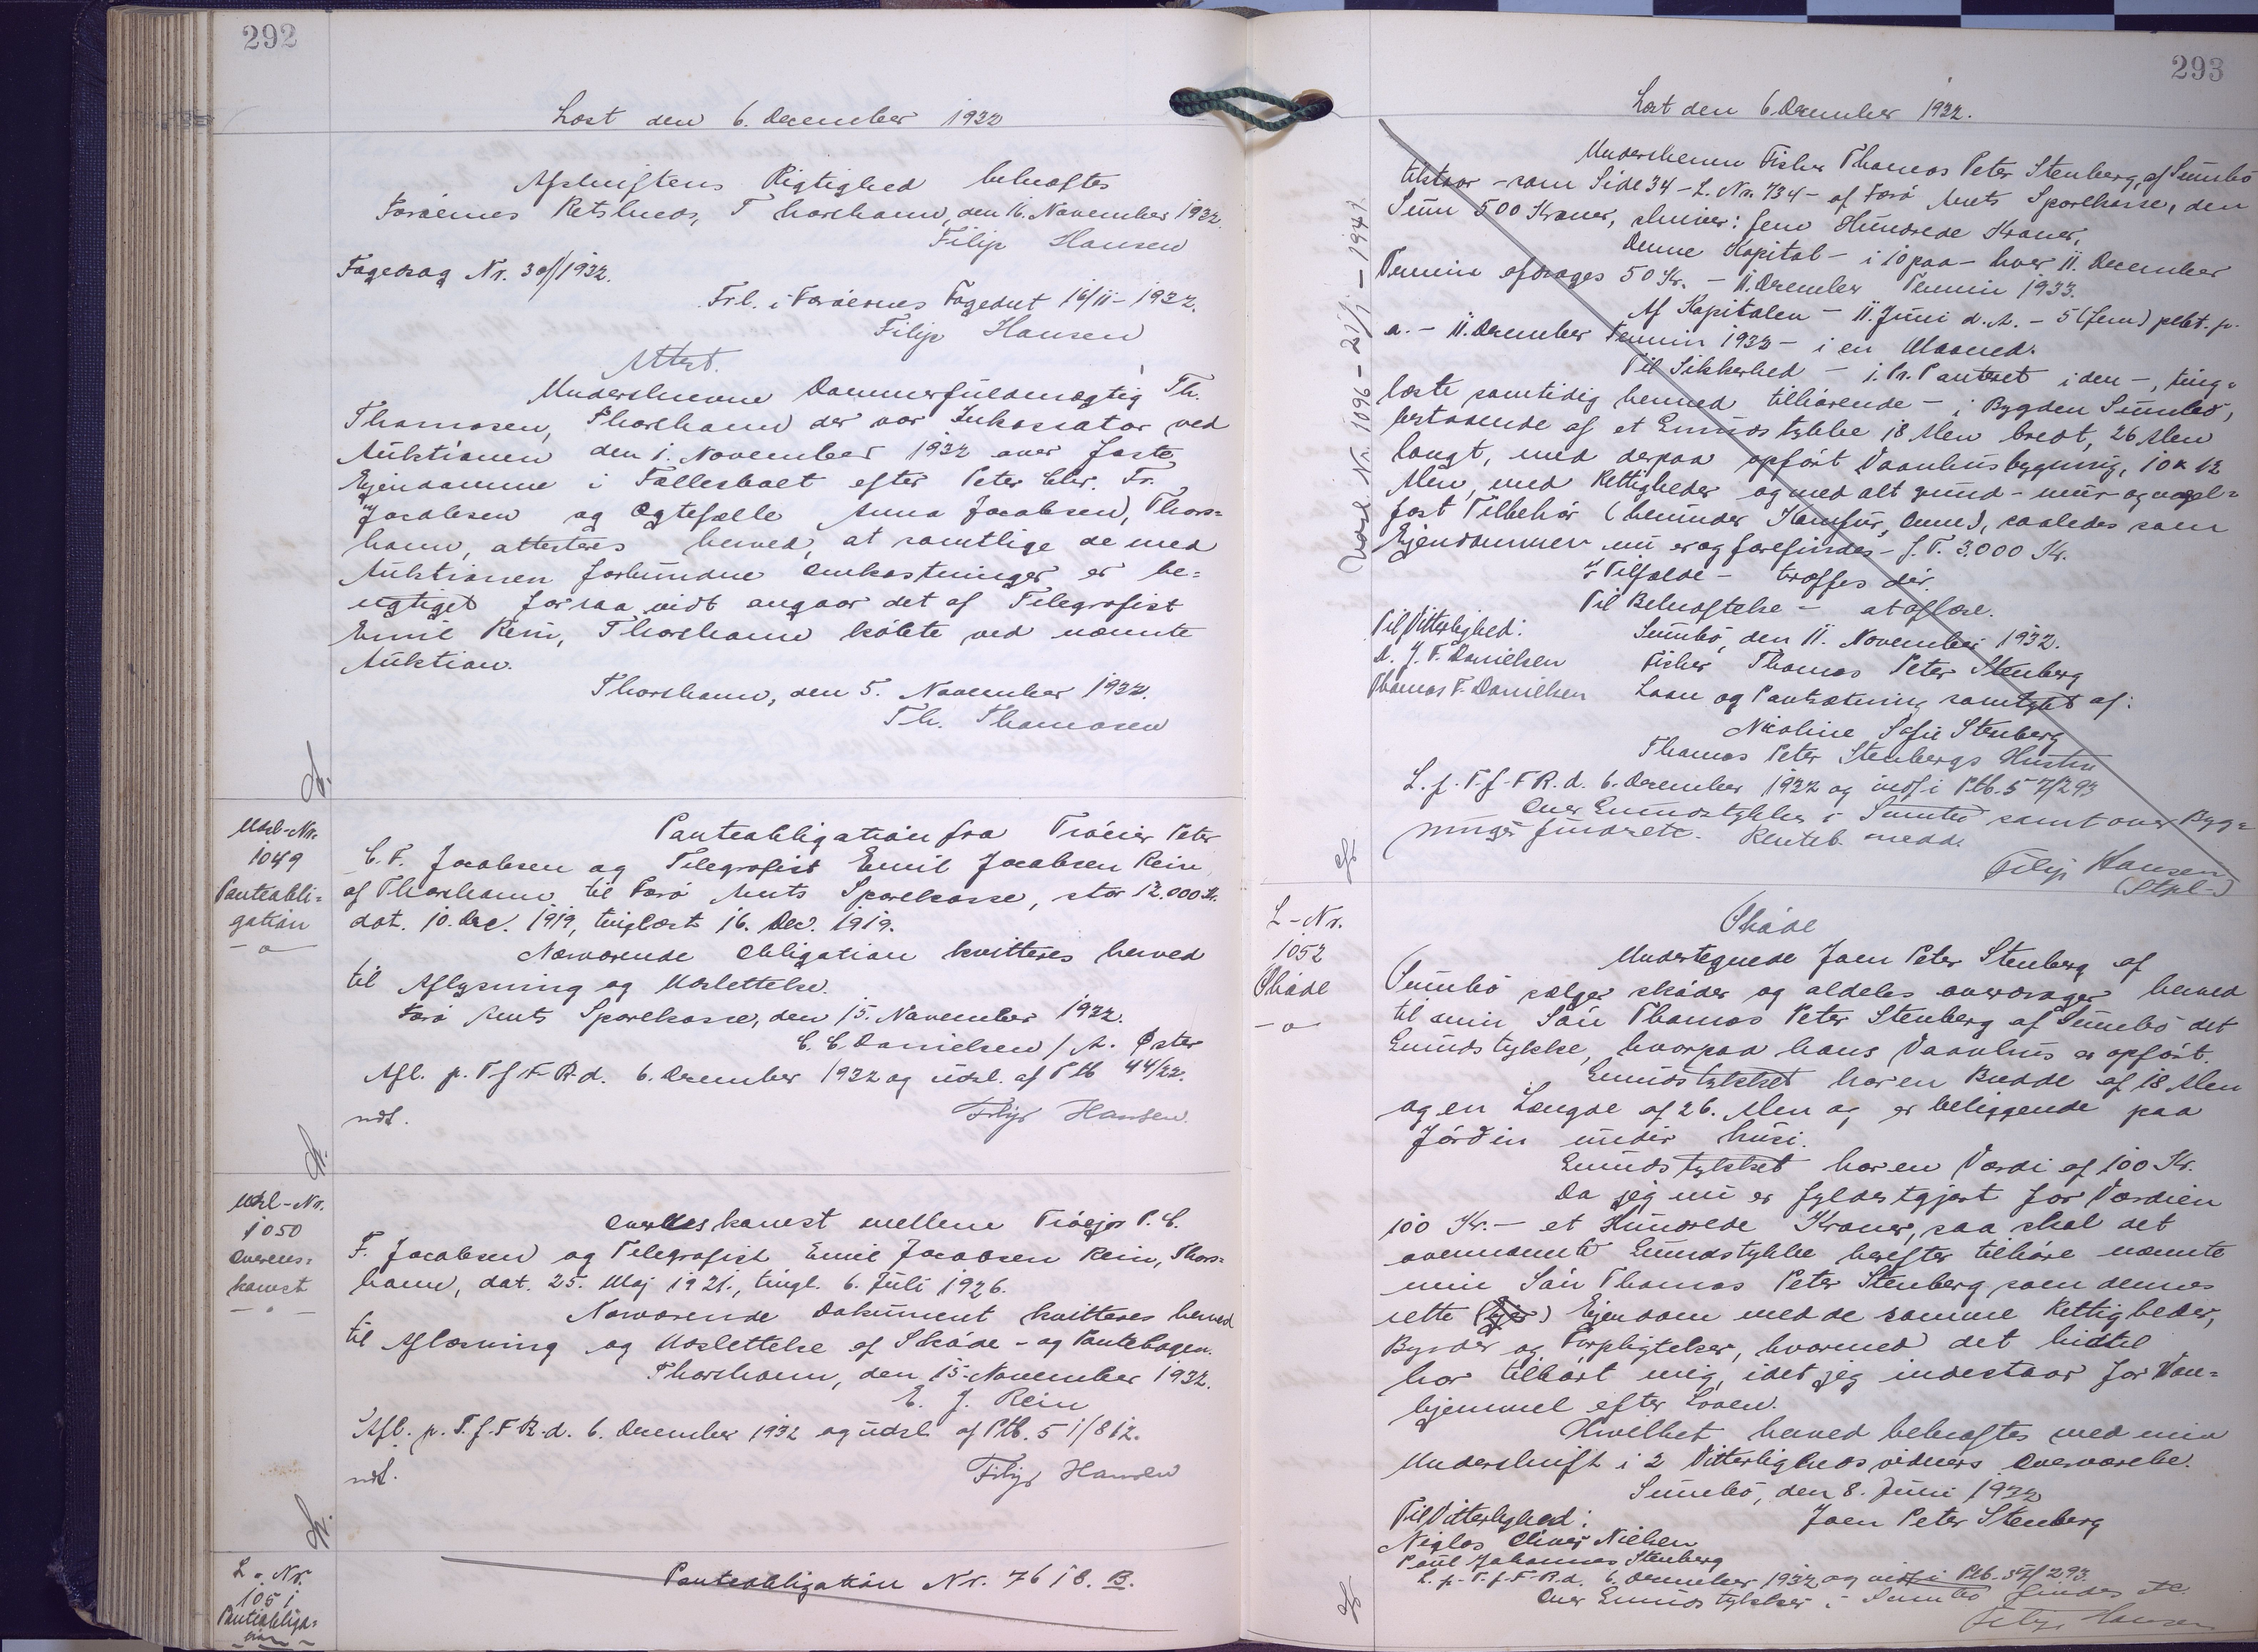 292
Læst den 6. December 1932
Afskriftens Rigtighed bekræftes
Færøernes Retskreds, Thorshavn, den 16. November 1932.
Filip Hansen
Fogedsag Nr. 30/1932.
Frl. i Færøernes Fogedret 16/11-1932.
Filip Hansen
Attest.
Underskrevne Dommerfuldmægtig Th.
Thomasen, Thorshavn der var Inkassator ved
Auktionen den 1. November 1932 over faste
Ejendomme i Fællesboet efter Peter Chr. Fr.
Jacobsen og Ægtefælle Anna Jacobsen, Thors=
havn, attesteres herved, at samtlige de med
Auktionen forbundne Omkostninger er be=
rigtiget forsaavidt angaar det af Telegrafist
Emil Rein, Thorshavn købte ved nævnte
Auktion.
Thorshavn, den 5. November 1932.
Th. Thomasen
Udsl-Nr.
1049
Panteobli=
gation
Panteobligation fra Tróeier Peter
C. F. Jacobsen og Telegrafist Emil Jacobsen Rein
af Thorshavn til Færø Amts Sparekasse, stor 12.000 Kr.
dat. 10. Dec. 1919, tinglæst 16. Dec. 1919.
Nærværende Obligation kvitteres herved
til Aflysning og Udslettelse.
Færø Amts Sparekasse, den 15. November 1932.
C. C. Danielsen / A. Øster
Afl. p. T f. F R d. 6. December 1932 og udsl. af Ptb 44/22.
ndt. Filip Hansen.
Udsl-Nr.
1050
Overens=
komst
Overenskomst mellem Tróejer P. C.
F. Jacobsen og Telegrafist Emil Jacobsen Rein, Thors=
havn, dat. 25. Maj 1921., tingl. 6. Juli 1926.
Nærværende Dokument kvitteres herved
til Aflæsning og Udslettelse af Skøde- og Pantebogen.
Thorshavn, den 15. November 1932.
E. J. Rein
Afl. p. T. f. F R. d. 6. December 1932 og udsl. af Ptb. 51/812.
ndt. Filip Hansen
L. Nr.
1051
Panteobliga=
tion
Panteobligation Nr. 7618. B.
293
Læst den 6 December 1932.
Udsl. Nr. 1096 - 1941.
Underskrevne Fisker Thomas Peter Stenberg, af Sumbø
tilstaar - som Side 34 - L. Nr. 734 - af Færø Amts Sparekasse, den
Sum 500 Kroner, skriver: fem Hundrede Kroner,
Denne Kapital - i 10 paa - hver 11. December
Termin afdrages 50 Kr. - 11. December Termin 1933.
Af Kapitalen - 11. Juni d. A. - 5 (fem) pCt. p.
a. - 11. December Termin 1932 - i en Maaned.
Til Sikkerhed - 1. Pr. Panteret i den -, ting=
læste samtidig hermed tilhørende - i Bygden Sumbø,
bestaaende af et Grundstykke 18 Alen bredt, 26 Alen
langt, med derpaa opført Vaanhusbygning, 10 x 12
Alen, med Rettigheder og med alt grund- mur- og nagel=
fast Tilbehør (herunder Komfur, Ovne), saaledes som
Ejendommen nu er og forefindes - f. T. 3.000 Kr.
I Tilfælde - træffes dér.
Til Bekræftelse - at aflæse.
Til Vitterlighed: Sumbø, den 11. November 1932.
D. J. F. Danielsen Fisker Thomas Peter Stenberg
Thomas F. Danielsen Laan og Pantsætning samtykt af:
Nicoline Sofie Stenberg
Thomas Peter Stenbergs Hustru
L. p. T. f. F R. d. 6. December 1932 og indf. i Ptb. 57/293
Over Grundstykker i Sumbø samt over Byg=
ninger findes etc. Kenteb. medd.
Filip Hansen
(Stpl-)
L-Nr.
1052
Skøde
Skøde
Undertegnede Joen Peter Stenberg af
Sumbø sælger skøder og aldeles overdrager herved
til min Søn Thomas Peter Stenberg af Sumbø det
Grundstykke, hvorpaa hans Vaanhus er opført.
Grundstykket har en Bredde af 18 Alen
og en Længde af 26. Alen og er beliggende paa
Jørðin undir húsi.
Grundstykket har en Værdi af 100 Kr.
Da jeg nu er fyldestgjort for Værdien
100 Kr. - et Hundrede Kroner, saa skal det
ovennævnte Grundstykke herefter tilhøre nævnte
min Søn Thomas Peter Stenberg som dennes
rette Ejendom med de samme Rettigheder,
Byrder og Forpligtelser, hvormed det hidtil
har tilhørt mig, idet jeg indestaar for Van=
hjemmel efter Loven.
Hvilket herved bekræftes med min
Underskrift i 2 Vitterlighedsvidners Overværelse.
Sumbø, den 8. Juni 1932
Til Vitterlighed: Joen Peter Stenberg
Niglas Oliver Nielsen
Poul Johannes Stenberg
L. p. T. f. F. R. d. 6. December 1932 og indf. i Ptb. 57/293.
Over Grundstykker i Sumbø findes etc.
Filip Hansen